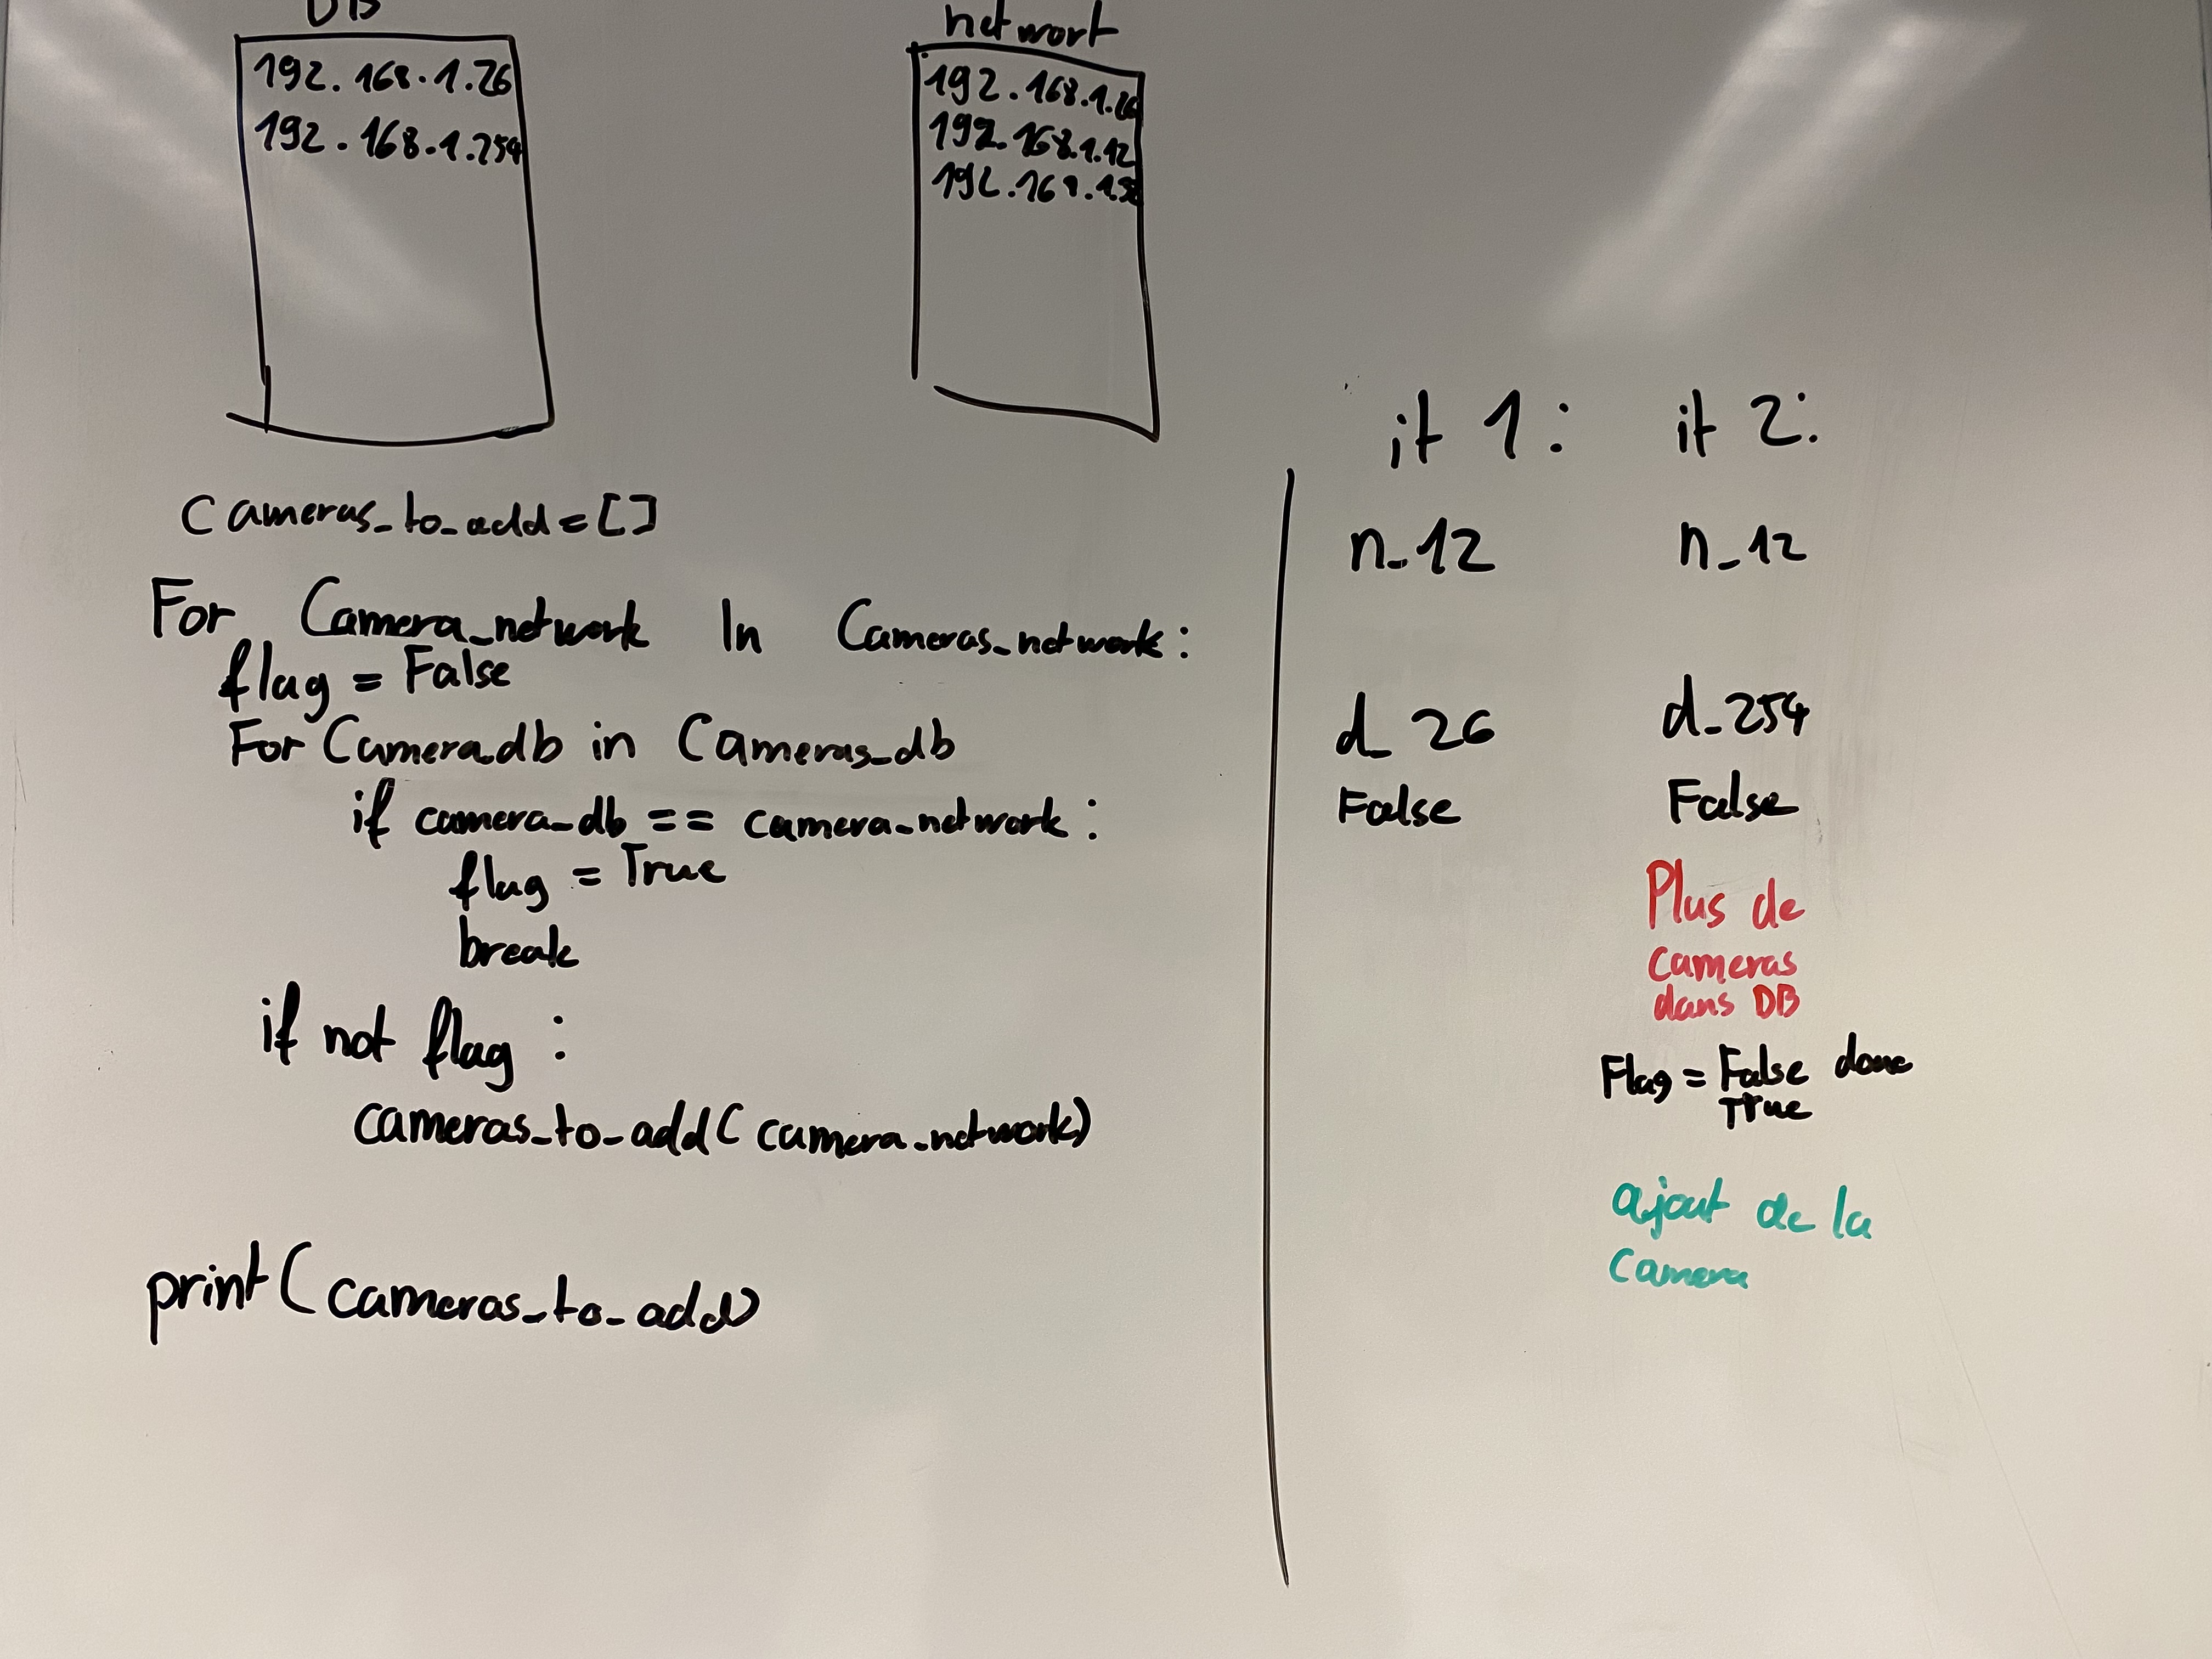 DB
192.168.1.26
192.168.1.254
networt
192.168.1.26
192.168.1.12
192.168.1.
Cameras_to_add=[]
For Camera_network In Cameras_network:
flag = False
For Camera_db in Cameras_db
if camera_db == camera_network:
flag = True
break
if not flag :
cameras_to_add( camera_network)
print( cameras_to_add)
it 1: it 2:
n_12 n_12
d_26 d_254
False False
Plus de
cameras
dans DB
Flag = False donc
True
ajout de la
camera